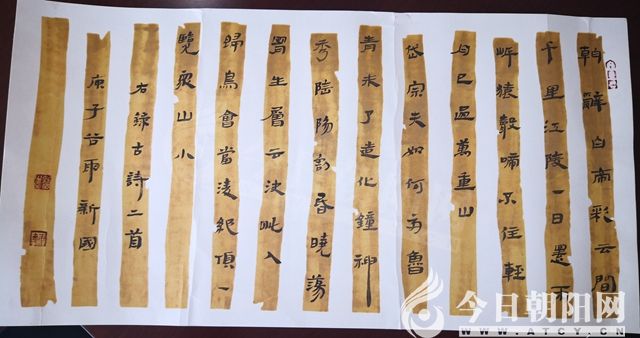 朝辭白帝彩云間
千里江陵一日還兩
岸猿聲啼不住輕
舟已過萬重山
岱宗夫如何齊魯
青未了造化鐘神
秀陰陽割昏曉蕩
胷生層云決眦入
歸鳥會當凌絕頂一
覽衆山小
右錄古詩二首
庚子谷雨新國
今日朝阳网
WWW.ATCY.CN